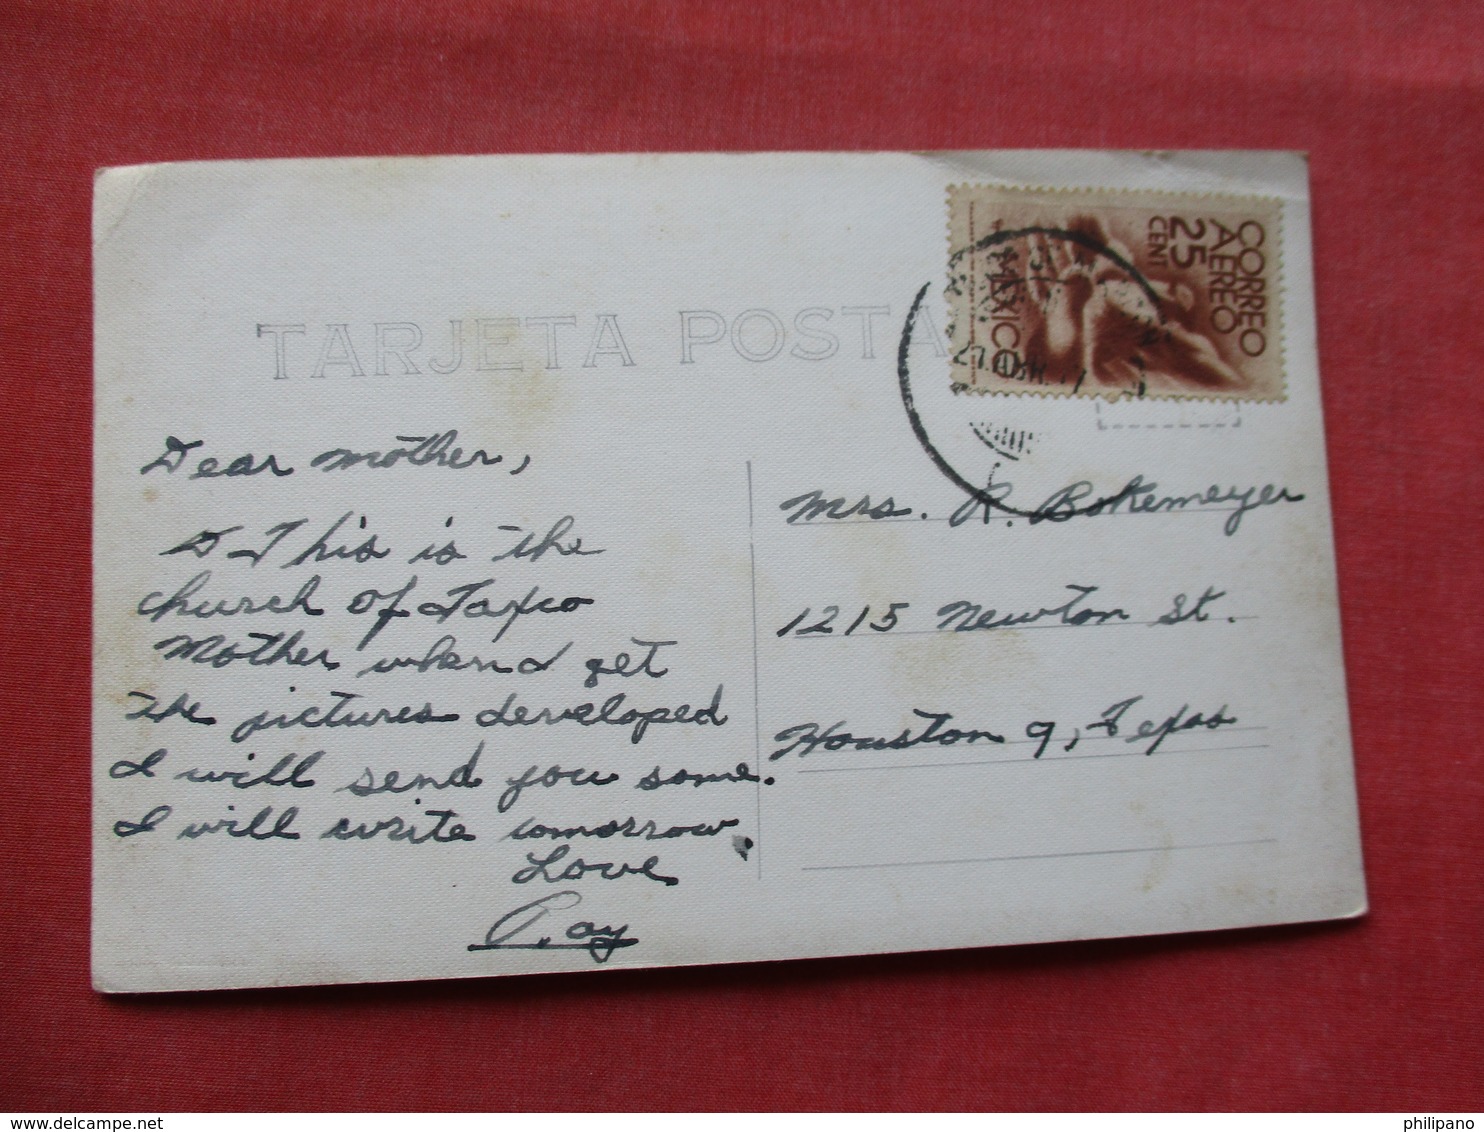 TARJETA POSTA
CORREO
AEREO
25
CENT
MEXICO
27 ABR. 47
Dear Mother,
This is the
church of Taxco
Mother when I get
the pictures developed
I will send you some.
I will write tomorrow.
Love
Ray
Mrs. R. Bokemeyer
1215 Newton St.
Houston 9, Texas
delcampe.net
philipano